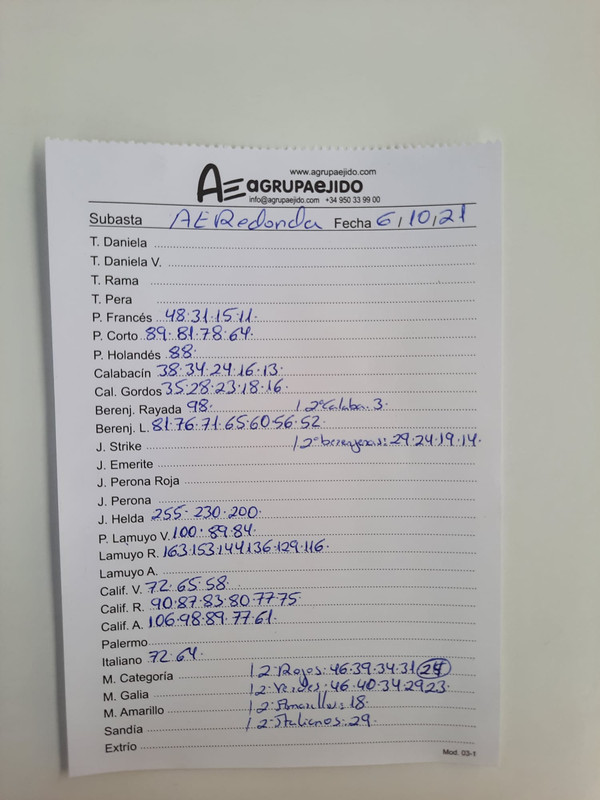 www.agrupaejido.com
AE AGRUPAEJIDO
info@agrupaejido.com +34 950 33 99 00
Subasta AE Redonda Fecha 6/10/21
T. Daniela
T. Daniela V.
T. Rama
T. Pera
P. Francés 48·31·15·11·
P. Corto 89·81·78·64·
P. Holandés 88·
Calabacín 38·34·24·16·13·
Cal. Gordos 35·28·23·18·16·
Berenj. Rayada 98· / 2ª Calaba. 3·
Berenj. L. 81·76·71·65·60·56·52·
J. Strike / 2ª berenjenas: 29·24·19·14·
J. Emerite
J. Perona Roja
J. Perona
J. Helda 255· 230·200·
P. Lamuyo V. 100·89·84·
Lamuyo R. 163·153·144·136·129·116·
Lamuyo A.
Calif. V. 72·65·58·
Calif. R. 90·87·83·80·77·75
Calif. A. 106·98·89·77·61·
Palermo
Italiano 72·64·
M. Categoría / 2ª Rojos: 46·39·34·31 24
M. Galia / 2ª Verdes: 46·40·34·29·23·
M. Amarillo / 2ª Amarillos: 18·
Sandía / 2ª Italianos: 29·
Extrío
Mod. 03-1